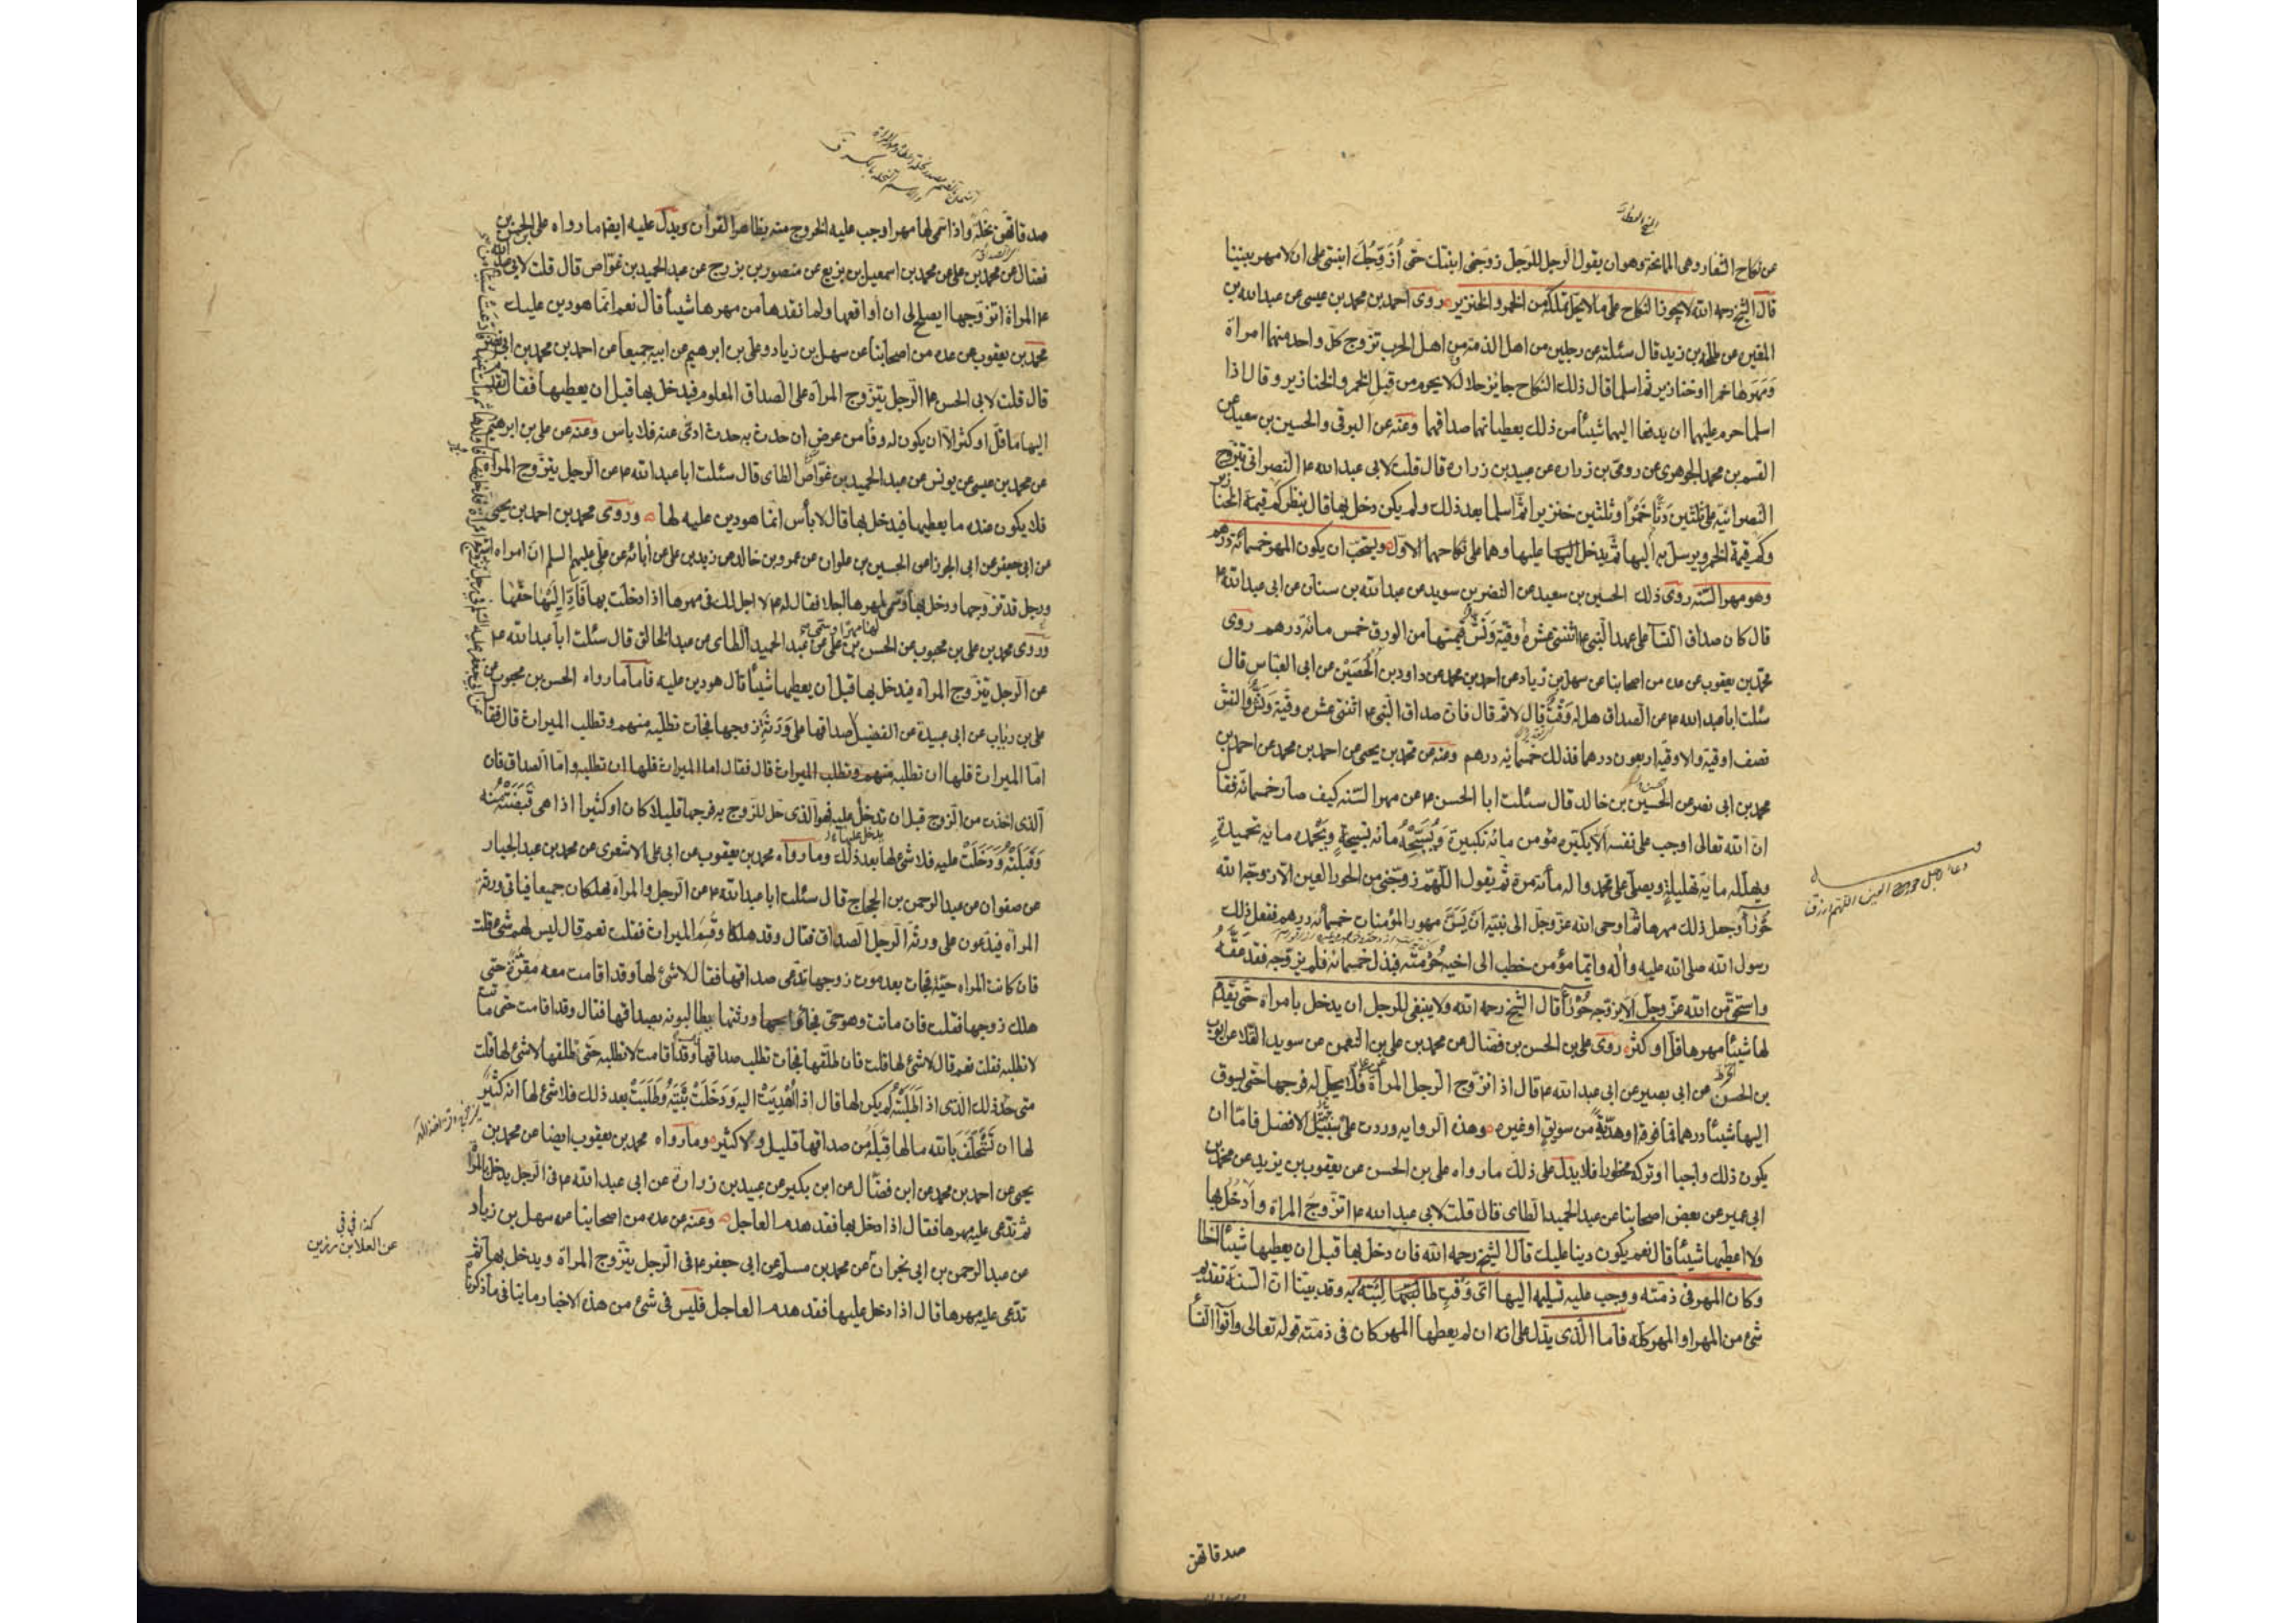 عن نكاح الشغار وهى الممانحة وهو ان يقول الرجل للرجل زوجنى ابنتك حتى أزوجك ابنتى على ان لا مهر بيننا
قال الشيخ رحمه الله لا يجوز النكاح على ما لا يحل تملكه من الخمر والخنزير روى احمد بن محمد بن عيسى عن عبد الله بن
المغيرة عن طلحة بن زيد قال سئلته عن رجلين من اهل الذمة من اهل الحرب تزوج كل واحد منهما امراة
ومهرها خمرا او خنازير ثم اسلما قال ذلك النكاح جايز حلال لا يحرم من قبل الخمر والخنازير وقال اذا
اسلما حرم عليهما ان يدفعا اليهما شيئا من ذلك يعطيانهما صداقهما وعنه عن البرقى والحسين بن سعيد عن
القسم بن محمد الجوهرى عن رومى بن زرارة عن عبيد بن زرارة قال قلت لابى عبد الله ع النصرانى يتزوج
النصرانية على ثلثين دنا خمرا وثلثين خنزيرا ثم اسلما بعد ذلك ولم يكن دخل بها قال ينظر كم قيمة الخنازير
وكم قيمة الخمر ويرسل به اليها ثم يدخل عليها وهما على نكاحهما الاول ويستحب ان يكون المهر خمسمائة درهم
وهو مهر السنة روى ذلك الحسين بن سعيد عن النضر بن سويد عن عبد الله بن سنان عن ابى عبد الله ع
قال كان صداق النسا على عهد النبى ع اثنتى عشرة اوقية ونش قيمتها من الورق خمس مائة درهم روى
محمد بن يعقوب عن عدة من اصحابنا عن سهل بن زياد عن احمد بن محمد عن داود بن الحصين عن ابى العباس قال
سئلت ابا عبد الله ع عن الصداق هل له وقت قال لا ثم قال كان صداق النبى ع اثنتى عشرة وقية ونش والنش
نصف اوقية والاوقية اربعون درهما فذلك خمسماية درهم وعنه عن محمد بن يحيى عن احمد بن محمد عن احمد بن
محمد بن ابى نصر عن الحسين بن خالد قال سئلت ابا الحسن ع عن مهر السنة كيف صار خمسمائة فقا
ان الله تعالى اوجب على نفسه الا يكبره مؤمن مائة تكبيرة ويسبحه مائة تسبيحة ويحمده ماية تحميدة
ويهلله ماية تهليلة ويصلى على محمد واله مأئة مرة ثم يقول اللهم زوجنى من الحور العين الا زوجه الله
حورا وجعل ذلك مهرها ثم اوحى الله عز وجل الى نبيه ان يسن مهور المؤمنات خمسمائة درهم ففعل ذلك
رسول الله صلى الله عليه واله وايما مؤمن خطب الى اخيه حرمته فبذل خمسمائة فلم يزوجه فقد عقه
واستحق من الله عز وجل الا يزوجه حورا قال الشيخ رحمه الله ولا ينبغى للرجل ان يدخل بامراة حتى يقدم
لها شيئا مهرها قل او كثر روى على بن الحسن بن فضال عن محمد بن على بن النعمن عن سويد القلا عن ايوب
بن الحر عن ابى بصير عن ابى عبد الله ع قال اذا تزوج الرجل المرأة فلا يحل له فرجها حتى يسوق
اليها شيئا درهما فما فوقه او هدية من سويق او غيره وهذه الرواية وردت على سبيل الافضل فاما ان
يكون ذلك واجبا او تركه محظورا فلا يدل على ذلك ما رواه على بن الحسن عن يعقوب بن يزيد عن محمد بن
ابى عمير عن بعض اصحابنا عن عبد الحميد الطاى قال قلت لابى عبد الله ع اتزوج المراة وادخل بها
ولا اعطيها شيئا قال نعم يكون دينا عليك قال الشيخ رحمه الله فان دخل بها قبل ان يعطيها شيئا اخطا
وكان المهر فى ذمته ووجب عليه تسليمه اليها اى وقت طالبته به وقد بينا ان السنة تقديم
شئ من المهر او المهر كله فاما الذى يدل على انه ان لم يعطها المهر كان فى ذمته قوله تعالى وآتوا النسأ
صدقاتهن
صدقاتهن نحلة واذا سمى لها مهرا وجب عليه الخروج منه بظاهر القرأن ويدل عليه ايضا ما رواه على بن الحسن بن
فضال عن محمد بن على عن محمد بن اسمعيل بن بزيع عن منصور بن بزرج عن عبد الحميد بن عواض قال قلت لابى عبد الله
ع المراة اتزوجها ايصلح لى ان أواقعها ولما نقدها من مهرها شيئا قال نعم انما هو دين عليك
محمد بن يعقوب عن عدة من اصحابنا عن سهل بن زياد وعلى بن ابرهيم عن ابيه جميعا عن احمد بن محمد بن ابى نصر
قال قلت لابى الحسن ع الرجل يتزوج المراة على الصداق المعلوم فيدخل بها قبل ان يعطيها فقال يقدم
اليها ما قل او كثر الا ان يكون له وفا من عرض ان حدث به حدث ادى عنه فلا باس وعنه عن على بن ابرهيم
عن محمد بن عيسى عن يونس عن عبد الحميد بن عواض الطاى قال سئلت ابا عبد الله ع عن الرجل يتزوج المراة
فلا يكون عنده ما يعطيها فيدخل بها قال لا بأس انما هو دين عليه لها وروى محمد بن احمد بن يحيى
عن ابى جعفر عن ابى الجوزا عن الحسين بن علوان عن عمرو بن خالد عن زيد بن على عن أبائه عن على عليهم السلم ان امراة اتته
ورجل قد تزوجها ودخل بها وسمى لها مهرا اجلا فقال له ع لا اجل لك فى مهرها اذا دخلت بها فاد اليها حقها
وروى محمد بن على بن محبوب عن الحسن بن على عن عبد الحميد الطاى عن عبد الخالق قال سئلت ابا عبد الله ع
عن الرجل يتزوج المراة فيدخل بها قبل ان يعطيها شيئا قال هو دين عليه فاما ما رواه الحسن بن محبوب عن
على بن رئاب عن ابى عبيدة عن الفضيل صداقها على ورثة زوجها فجات تطلبه منهم وتطلب الميراث قال فقا
اما الميراث فلها ان تطلبه منهم وتطلب الميراث قال فقال اما الميراث فلها ان تطلبه واما الصداق فان
الذى اخذت من الزوج قبل ان تدخل عليه فهو الذى حل للزوج به فرجها قليلا كان او كثيرا اذا هى قبضته منه
وقبلته ودخلت عليه فلا شئ لها بعد ذلك وما رواه محمد بن يعقوب عن ابى على الاشعرى عن محمد بن عبد الجبار
عن صفوان عن عبد الرحمن بن الحجاج قال سئلت ابا عبد الله ع عن الرجل والمراة يهلكان جميعا فياتى ورثة
المرأة فيدعون على ورثة الرجل الصداق فقال وقد هلكا وقسم الميراث فقلت نعم قال ليس لهم شئ قلت
فان كانت المراه حية فجات بعد موت زوجها تدعى صداقها فقال لا شئ لها وقد اقامت معه مقرة حتى
هلك زوجها فقلت فان ماتت وهو حى فجائوا ورثتها يطالبونه بصداقها فقال وقد اقامت حتى ماتت
لا تطلبه فقلت نعم قال لا شئ لها قلت فان طلقها فجات تطلب صداقها قال وقد اقامت لا تطلبه حتى طلقها لا شئ لها قلت
متى حد ذلك الذى اذا طلبته لم يكن لها قال اذا أهديت اليه ودخلت بيته وطلبت بعد ذلك فلا شئ لها انه كثير
لها ان تستحلف بالله ما لها قبله من صداقها قليل ولا كثير وما رواه محمد بن يعقوب ايضا عن محمد بن
يحيى عن احمد بن محمد عن ابن فضال عن ابن بكير عن عبيد بن زرارة عن ابى عبد الله ع فى الرجل يدخل بالمرأة
ثم تدعى عليه مهرها فقال اذا دخل بها فقد هدم العاجل وعنه عن عدة من اصحابنا عن سهل بن زياد
عن عبد الرحمن بن ابى نجران عن محمد بن مسلم عن ابى جعفر ع فى الرجل يتزوج المراة ويدخل بها ثم
تدعى عليه مهرها قال اذا دخل عليها فقد هدم العاجل فليس فى شئ من هذه الاخبار ما ينافى ما ذكرناه
كذا فى فى
عن العلا بن رزين